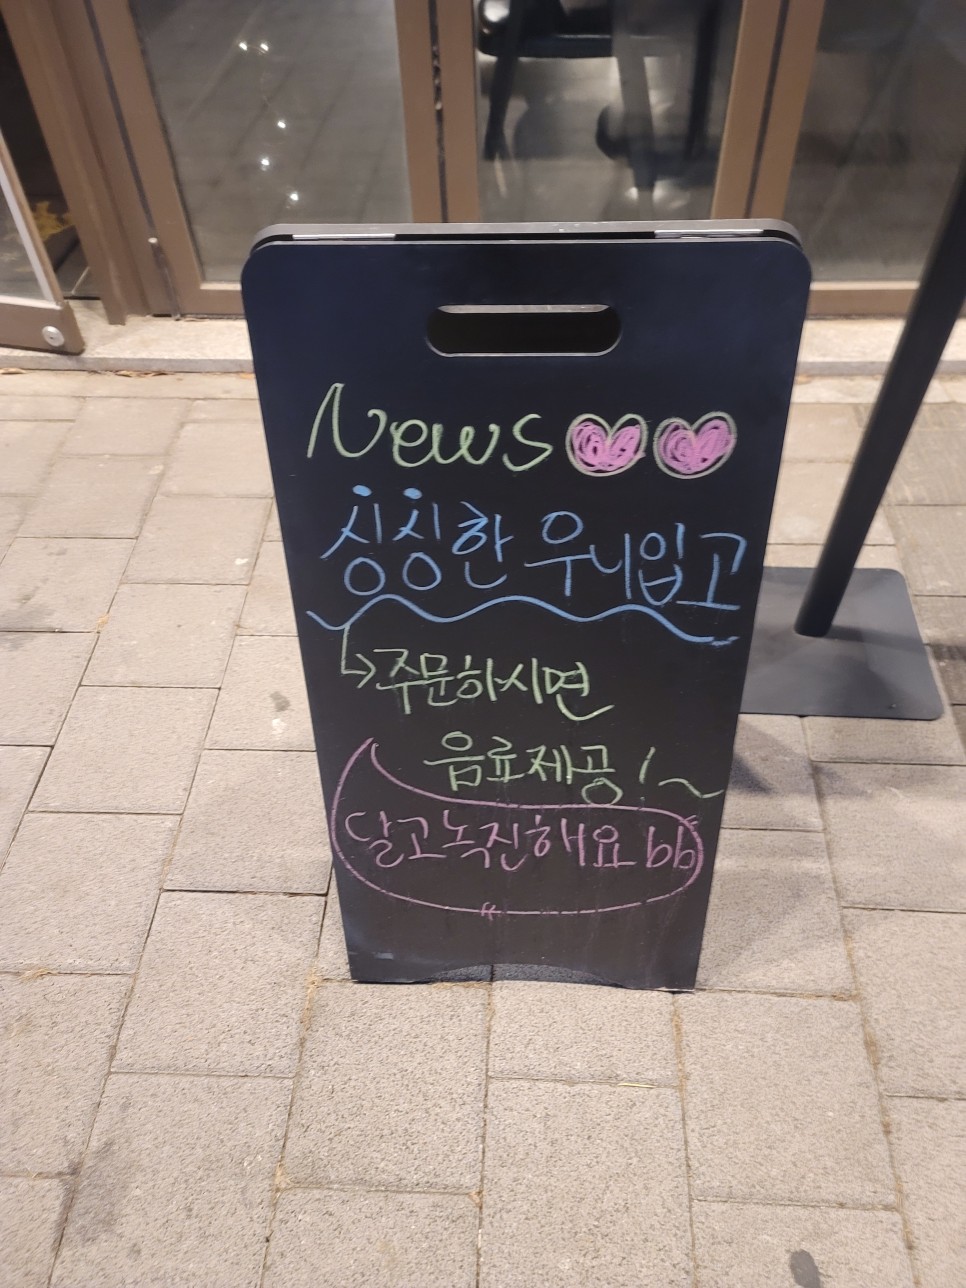 News
싱싱한 우니입고
→주문하시면
음료제공!~
달고녹진해요 bb